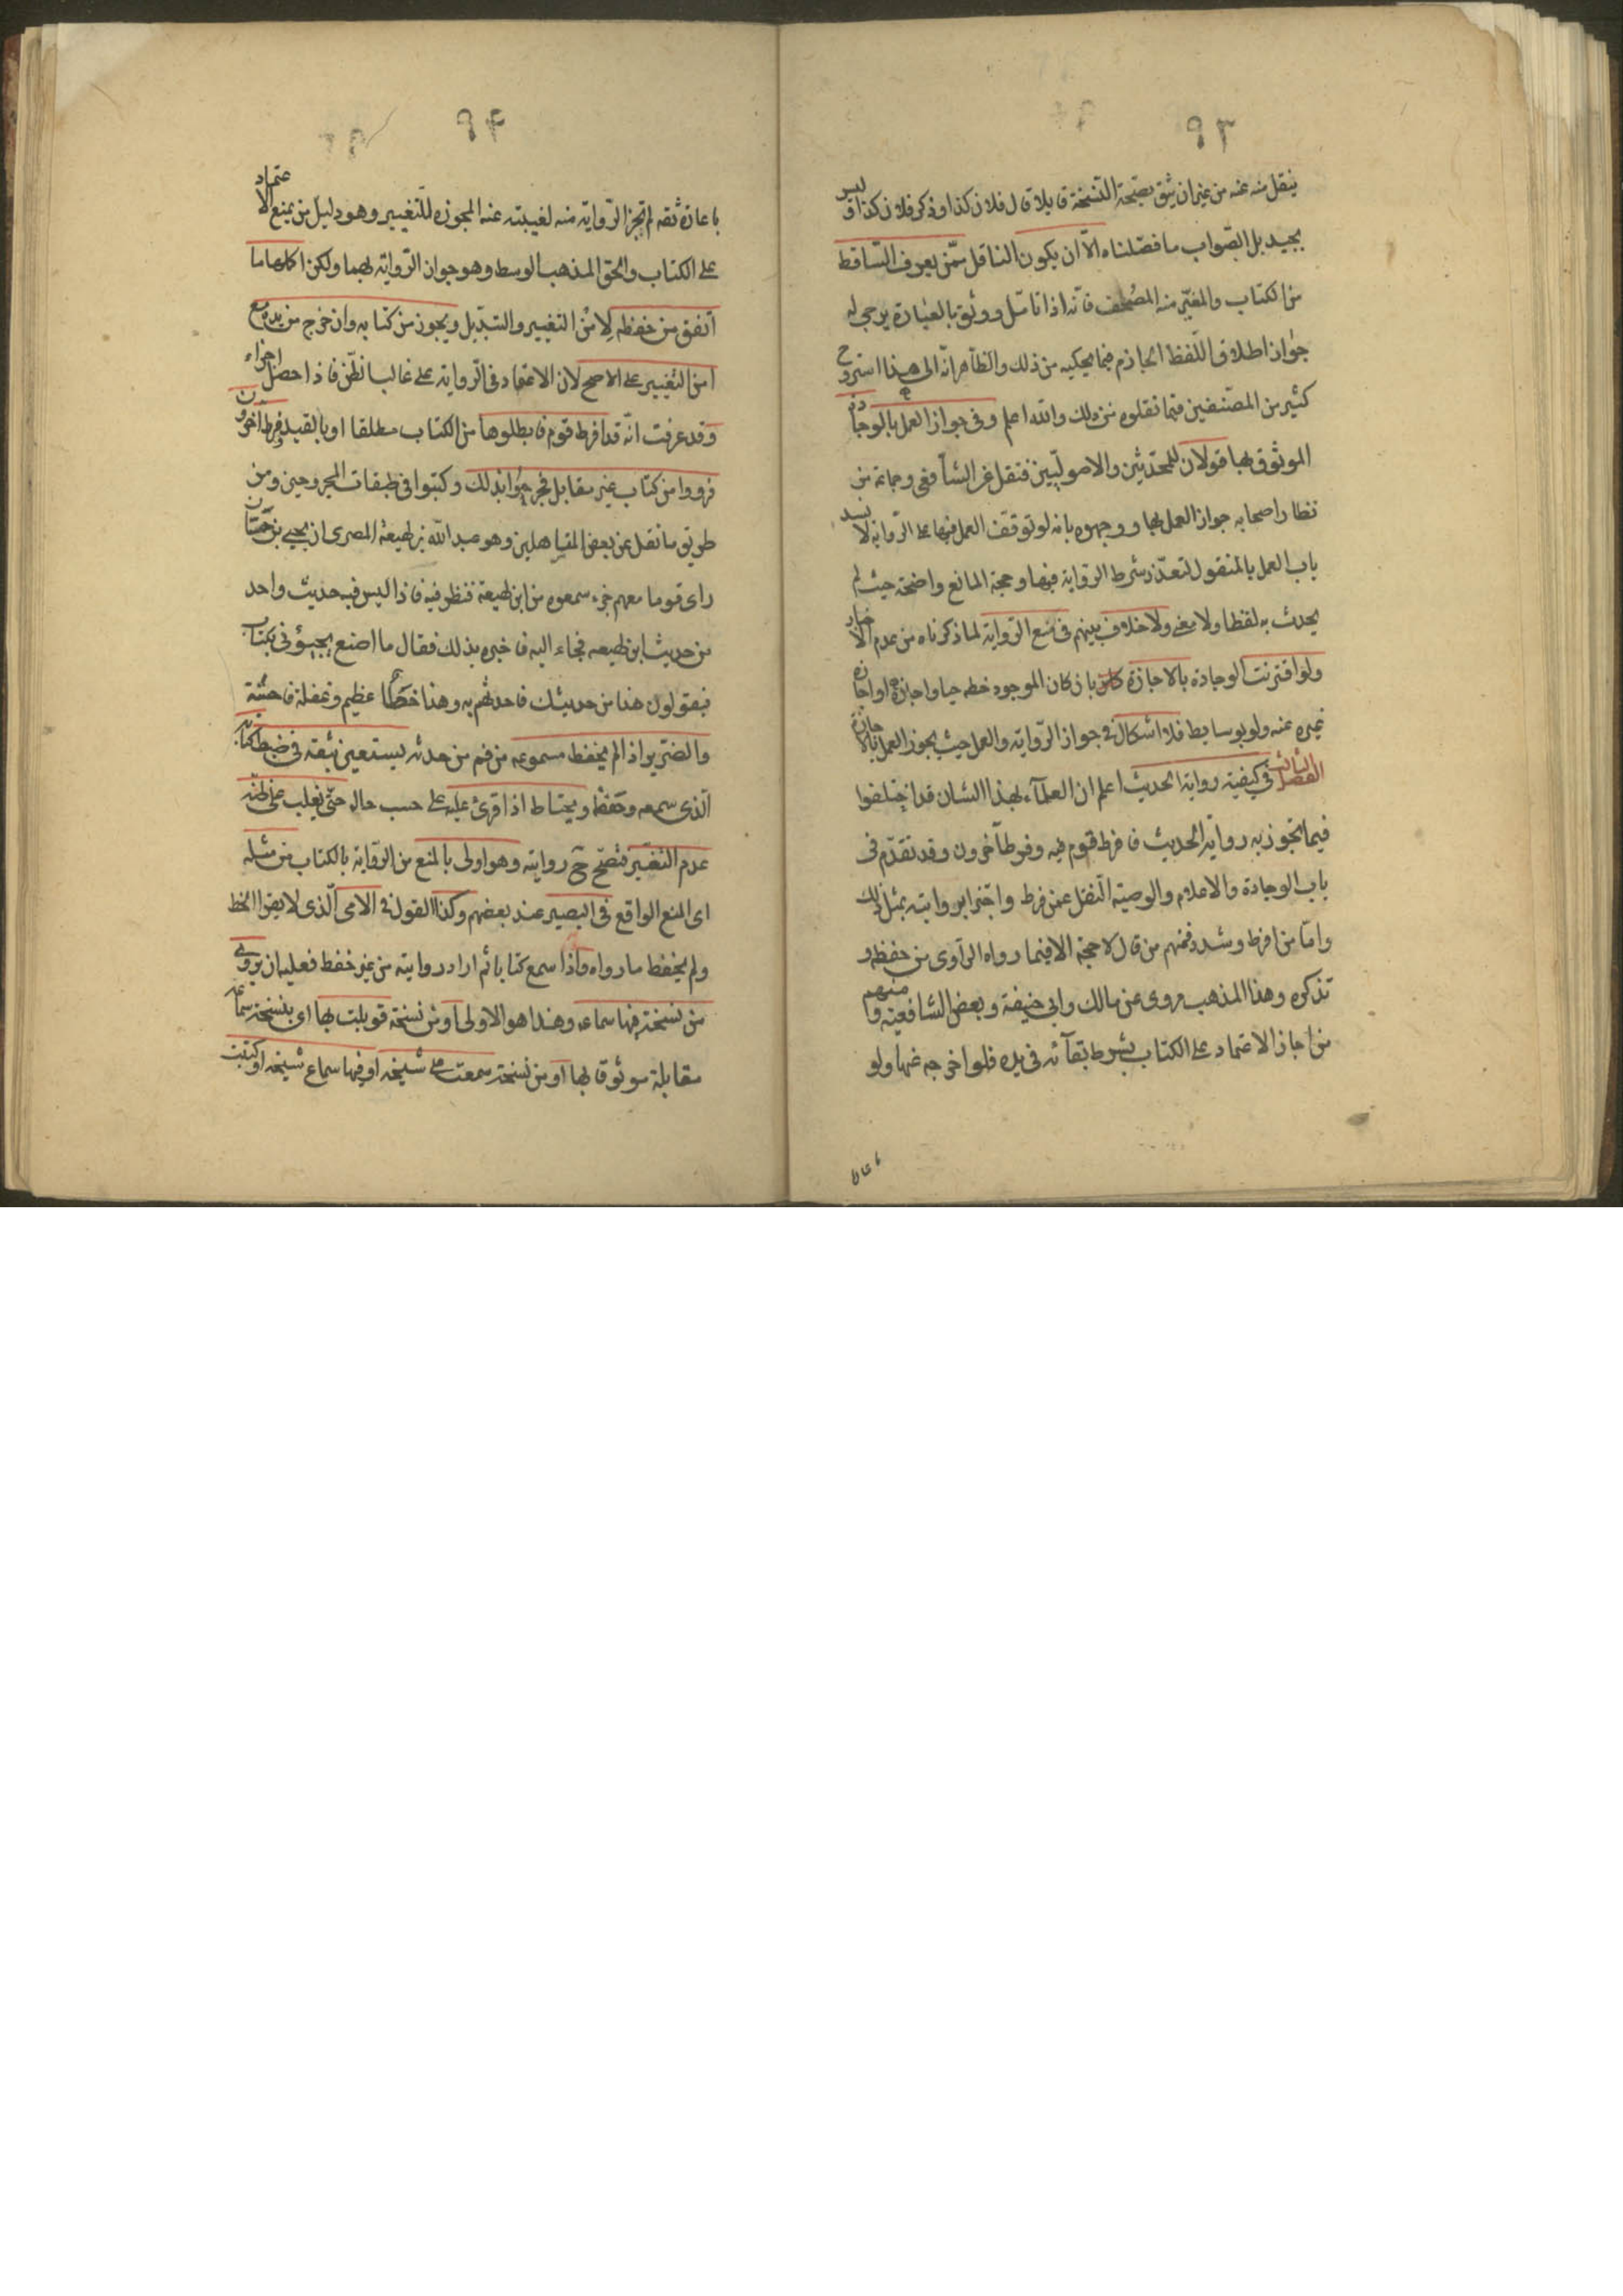 ٩٣
ينقل منه عنه من غير ان يثق بصحة النسخة قايلا قال فلان كذا او ذكر فلان كذا وليس
بجيد بل الصواب ما فصلناه الا ان يكون الناقل ممن يعرف الساقط
من الكتاب والمغير منه المصحف فانه اذا تامل ووثق بالعبارة يرجى له
جواز اطلاق اللفظ الجازم فيما يحكيه من ذلك والظاهر انه الى هذا استروح
كثير من المصنفين فيما نقلوه من ذلك والله اعلم وفي جواز العمل بالوجادة
الموثوق بها قولان للمحدثين والاصوليين فنقل عن الشافعي وجماعة من
نظار اصحابه جواز العمل بها ووجهوه بانه لو توقف العمل فيها على الرواية لانسد
باب العمل بالمنقول لتعذر شرط الرواية فيها وحجة المانع واضحة حيث لم
يحدث به لفظا ولا معنى ولا خلاف بينهم في منع الرواية لما ذكرناه من عدم الاخبار
ولو اقترنت الوجادة بالاجازة بان كان الموجود خطه حيا واجازه او اجازه
غيره عنه ولو بوسايط فلا اشكال في جواز الرواية والعمل حيث يجوز العمل بالاجازة
الفصل الثالث في كيفية رواية الحديث اعلم ان العلماء بهذا الشان قد اختلفوا
فيما تجوز به رواية الحديث فافرط قوم فيه وفرط آخرون وقد تقدم في
باب الوجادة والاعلام والوصية النقل عمن فرط واجتزا بروايته بمثل ذلك
واما من افرط وشدد فمنهم من قال لا حجة الا فيما رواه الراوي من حفظه و
تذكره وهذا المذهب مروي عن مالك وابي حنيفة وبعض الشافعية ومنهم
من اجاز الاعتماد على الكتاب بشرط بقائه في يده فلو اخرجه عنها ولو
باعا
٩٤
باعارة ثقه لم تجز الرواية منه لغيبته عنه المجوزه للتغيير وهو دليل من يمنع الاعتماد
على الكتاب والحق المذهب الوسط وهو جواز الرواية بهما ولكن اكملها ما
اتفق من حفظه لامن التغيير والتبديل ويجوز من كتابه وان خرج من يده مع
امن التغيير على الاصح لان الاعتماد في الرواية على غالب الظن فاذا حصل اجزاء
وقد عرفت انه قد افرط قوم فابطلوها من الكتاب مطلقا او بالقيد وفرط اخرون
فرووا من كتاب غير مقابل فجرحوا بذلك وكتبوا في طبقات المجروحين ومن
طريق ما نقل عن بعض المتساهلين وهو عبد الله بن لهيعة المصري ان يحيى بن حسان
راى قوما معهم جزء سمعوه من ابن لهيعة فنظر فيه فاذا ليس فيه حديث واحد
من حديث ابن لهيعه فجاء اليه فاخبره بذلك فقال ما اصنع يجيؤني بكتاب
فيقولون هذا من حديثك فاحدثهم به وهذا خطأ عظيم وغفلة فاحشة
والضرير اذا لم يحفظ مسموعه من فم من حدثه يستعين بثقه في ضبط كتابه
الذي سمعه وحفظه ويحتاط اذا قرئ عليه على حسب حاله حتى يغلب على ظنه
عدم التغيير فتصح ح روايته وهو اولى بالمنع من الرواية بالكتاب من مثله
اي المنع الواقع في البصير عند بعضهم وكذا القول في الامي الذي لا يقرا الخط
ولم يحفظ ما رواه واذا سمع كتابا ثم اراد روايته من غير حفظ فعليه ان يرويه
من نسخة فيها سماعه وهذا هو الاولى او من نسخة قوبلت بها اي بنسخة سماعه
مقابلة موثوق بها او من نسخة سمعت على شيخه او فيها سماع شيخه او كتبت